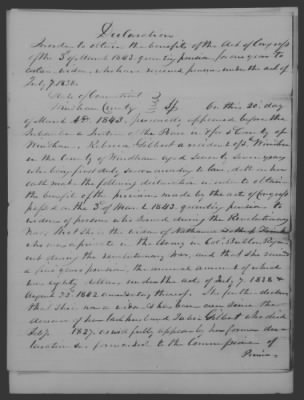 Declaration
In order to obtain the benefits of the Act of Congress
of the 3d of March 1843 granting pension for one year to
certain widows, who have received pension under the act of
July 7 1838.
State of Connecticut
Windham County } Ss. On this 20th day
of March A.D. 1843, personally appeared before the
Subscriber a Justice of the Peace in & for the County of
Windham, Rebecca Gilbert a resident of Windham
in the County of Windham aged Seventy Seven years
who being first duly sworn according to law, doth on her
oath make the following declaration in order to obtain
the benefit of the provision made by the act of Congress
passed on the 3d of March 1843, granting pension to
widows of persons who served during the Revolutionary
War, That she is the widow of Nathaniel
who was a private in the Army in Col. Regi-
ment during the revolutionary war, and that she received
a five years pension, the annual amount of which
was eighty dollars, under the act of July 7, 1838 &
August 23d 1842 amendatory thereof. She further declares
that she was a widow & has been ever since the
decease of her last husband Gilbert who died
1827. as will fully appear by her former dec-
laration forwarded to the Commissioner of
Pensions.